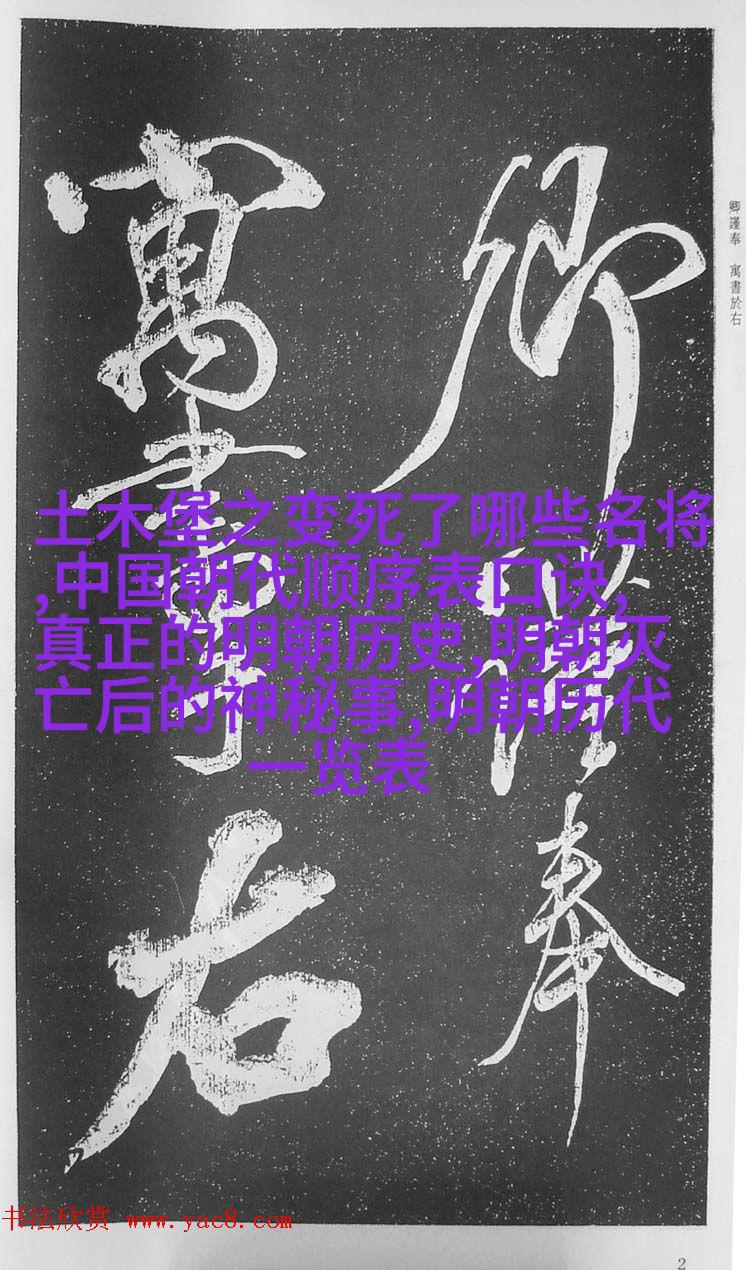 卿謹奉
寓書於右
卿謹奉 寓書於右
土木堡之变死了哪些名将
,中国朝代顺序表口诀,
真正的明朝历史,明朝灭
亡后的神秘事,明朝历代
一览表
书法欣赏 www.yac8.com
2